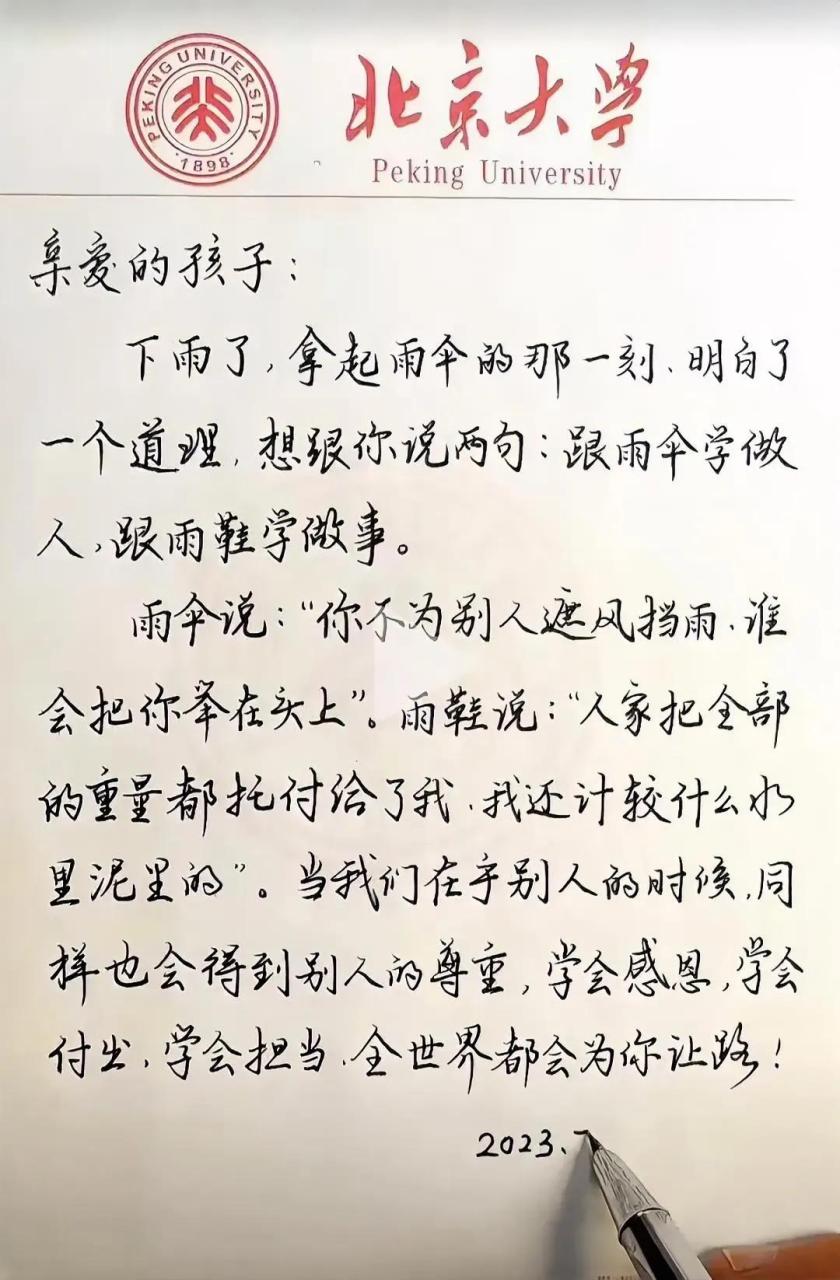 PEKING UNIVERSITY
1898
北京大学
Peking University
亲爱的孩子：
下雨了，拿起雨伞的那一刻、明白了
一个道理，想跟你说两句：跟雨伞学做
人，跟雨鞋学做事。
雨伞说：“你不为别人遮风挡雨、谁
会把你举在头上”。雨鞋说：“人家把全部
的重量都托付给了我、我还计较什么水
里泥里的”。当我们在乎别人的时候，同
样也会得到别人的尊重，学会感恩，学会
付出，学会担当、全世界都会为你让路！
2023.